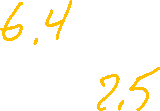 6,4
2,5